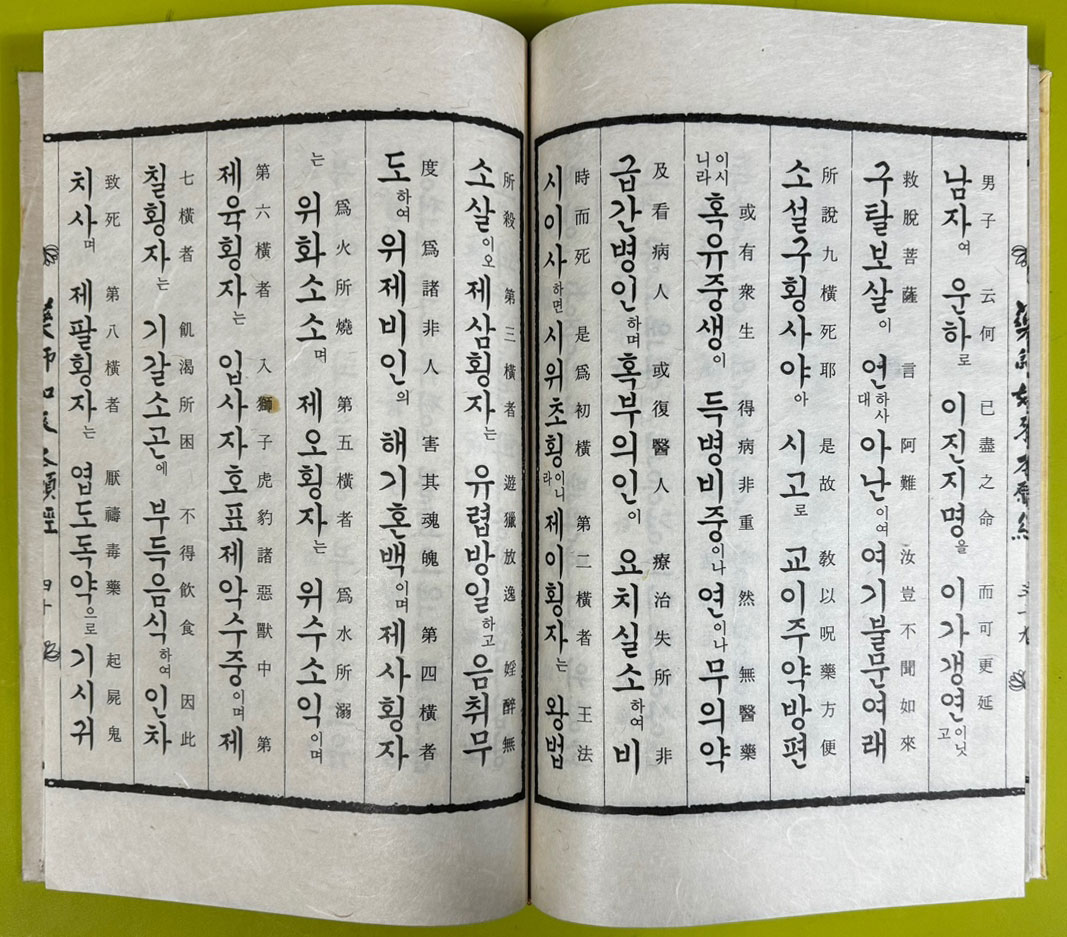 男子 云何 已盡之命 而可更延
남자여 운하로 이진지명을 이가갱연이닛고
救脫菩薩 言 阿難 汝豈不聞如來
구탈보살이 언하사대 아난이여 여기불문여래
所說九橫死耶 是故 敎以呪藥方便
소설구횡사야아 시고로 교이주약방편
或有衆生 得病非重 然 無醫藥
이시니라 혹유중생이 득병비중이나 연이나 무의약
及看病人 或復醫人 療治失所 非
급간병인하며 혹부의인이 요치실소하여 비
時而死 是爲初橫 第二橫者 王法
시이사하면 시위초횡이니라 제이횡자는 왕법
所殺 第三橫者 遊獵放逸 婬醉無
소살이오 제삼횡자는 유렵방일하고 음취무
度 爲諸非人 害其魂魄 第四橫者
도하여 위제비인의 해기혼백이며 제사횡자
爲火所燒 第五橫者 爲水所溺
는 위화소소며 제오횡자는 위수소익이며
第六橫者 入獅子虎豹諸惡獸中 第
제육횡자는 입사자호표제악수중이며 제
七橫者 飢渴所困 不得飮食 因此
칠횡자는 기갈소곤에 부득음식하여 인차
致死 第八橫者 厭禱毒藥 起屍鬼
치사며 제팔횡자는 염도독약으로 기시귀